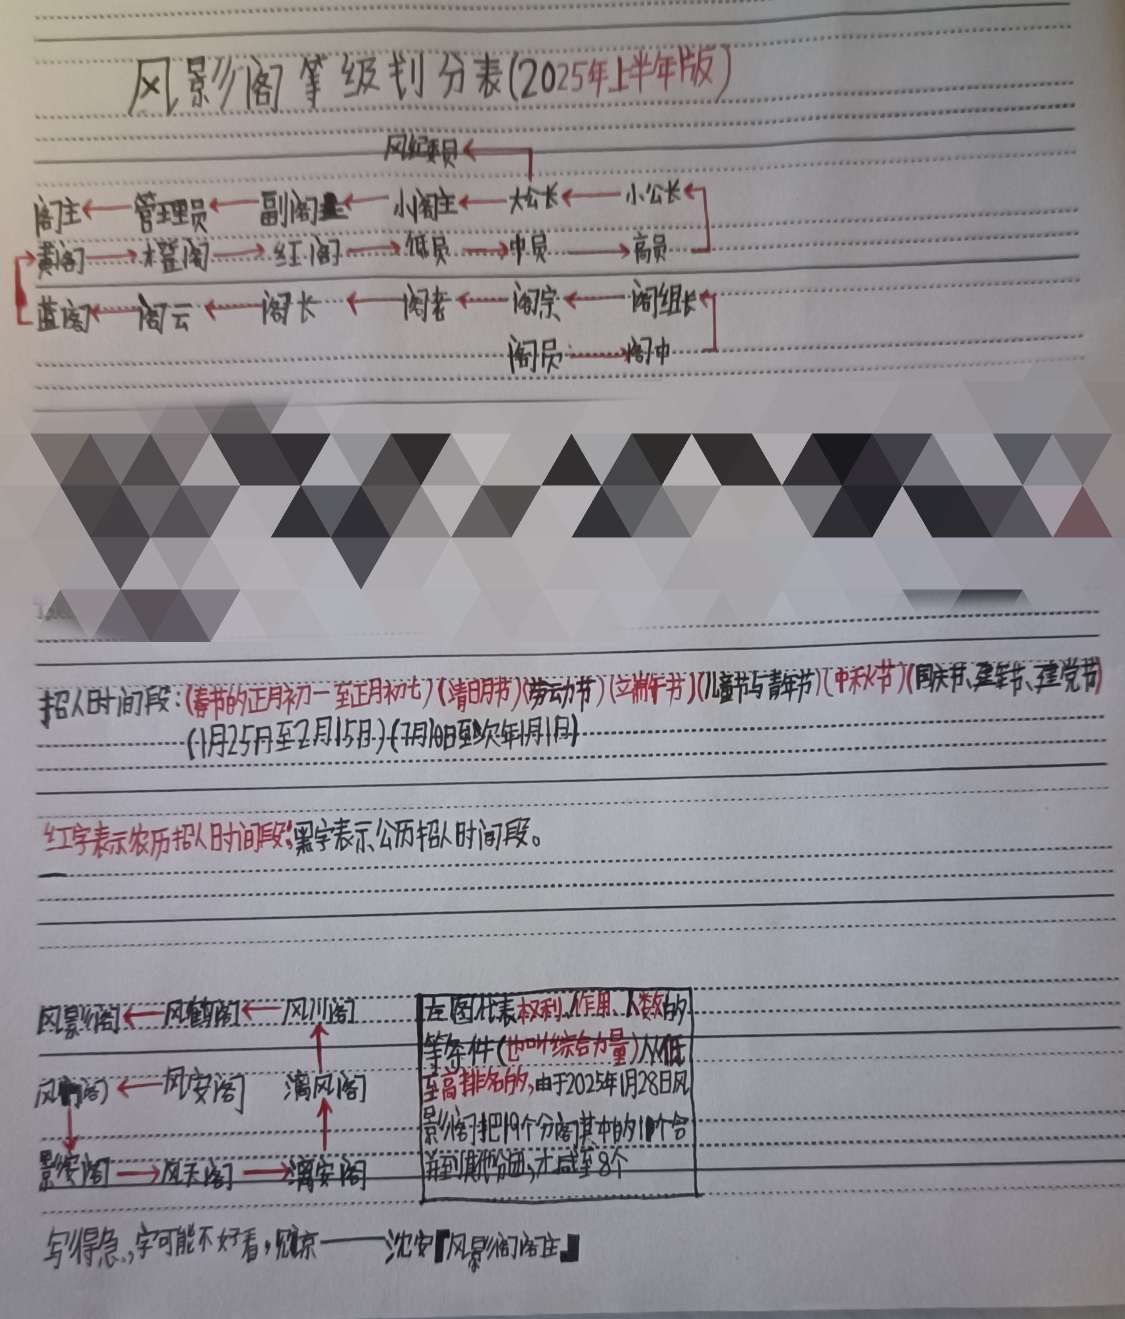 风影阁等级划分表(2025年上半年版)
风纪委员
阁主←管理员←副阁主←小阁主←大公长←小公长
黄阁→橙阁→红阁→低员→中员→高员
蓝阁←阁云←阁长←阁老←阁宗←阁组长
阁员→阁中
招人时间段:(春节的正月初一至正月初七)(清明节)(劳动节)(立端午节)(儿童节与青年节)(中秋节)(国庆节、建军节、建党节)
(1月25日至2月15日)(7月10日至次年1月1日)
红字表示农历招人时间段;黑字表示公历招人时间段。
风影阁←风鹤阁←风川阁
←风安阁 漓风阁
影安阁→风天阁→漓安阁
左图代表权利、作用、人数的
等条件(也叫综合力量)从低
至高排名的,由于2025年1月28日风
影阁把19个分阁其中的11个合
并到其他分西,才减至8个
写得急,字可能不好看,见京——沈安『风影阁阁主』